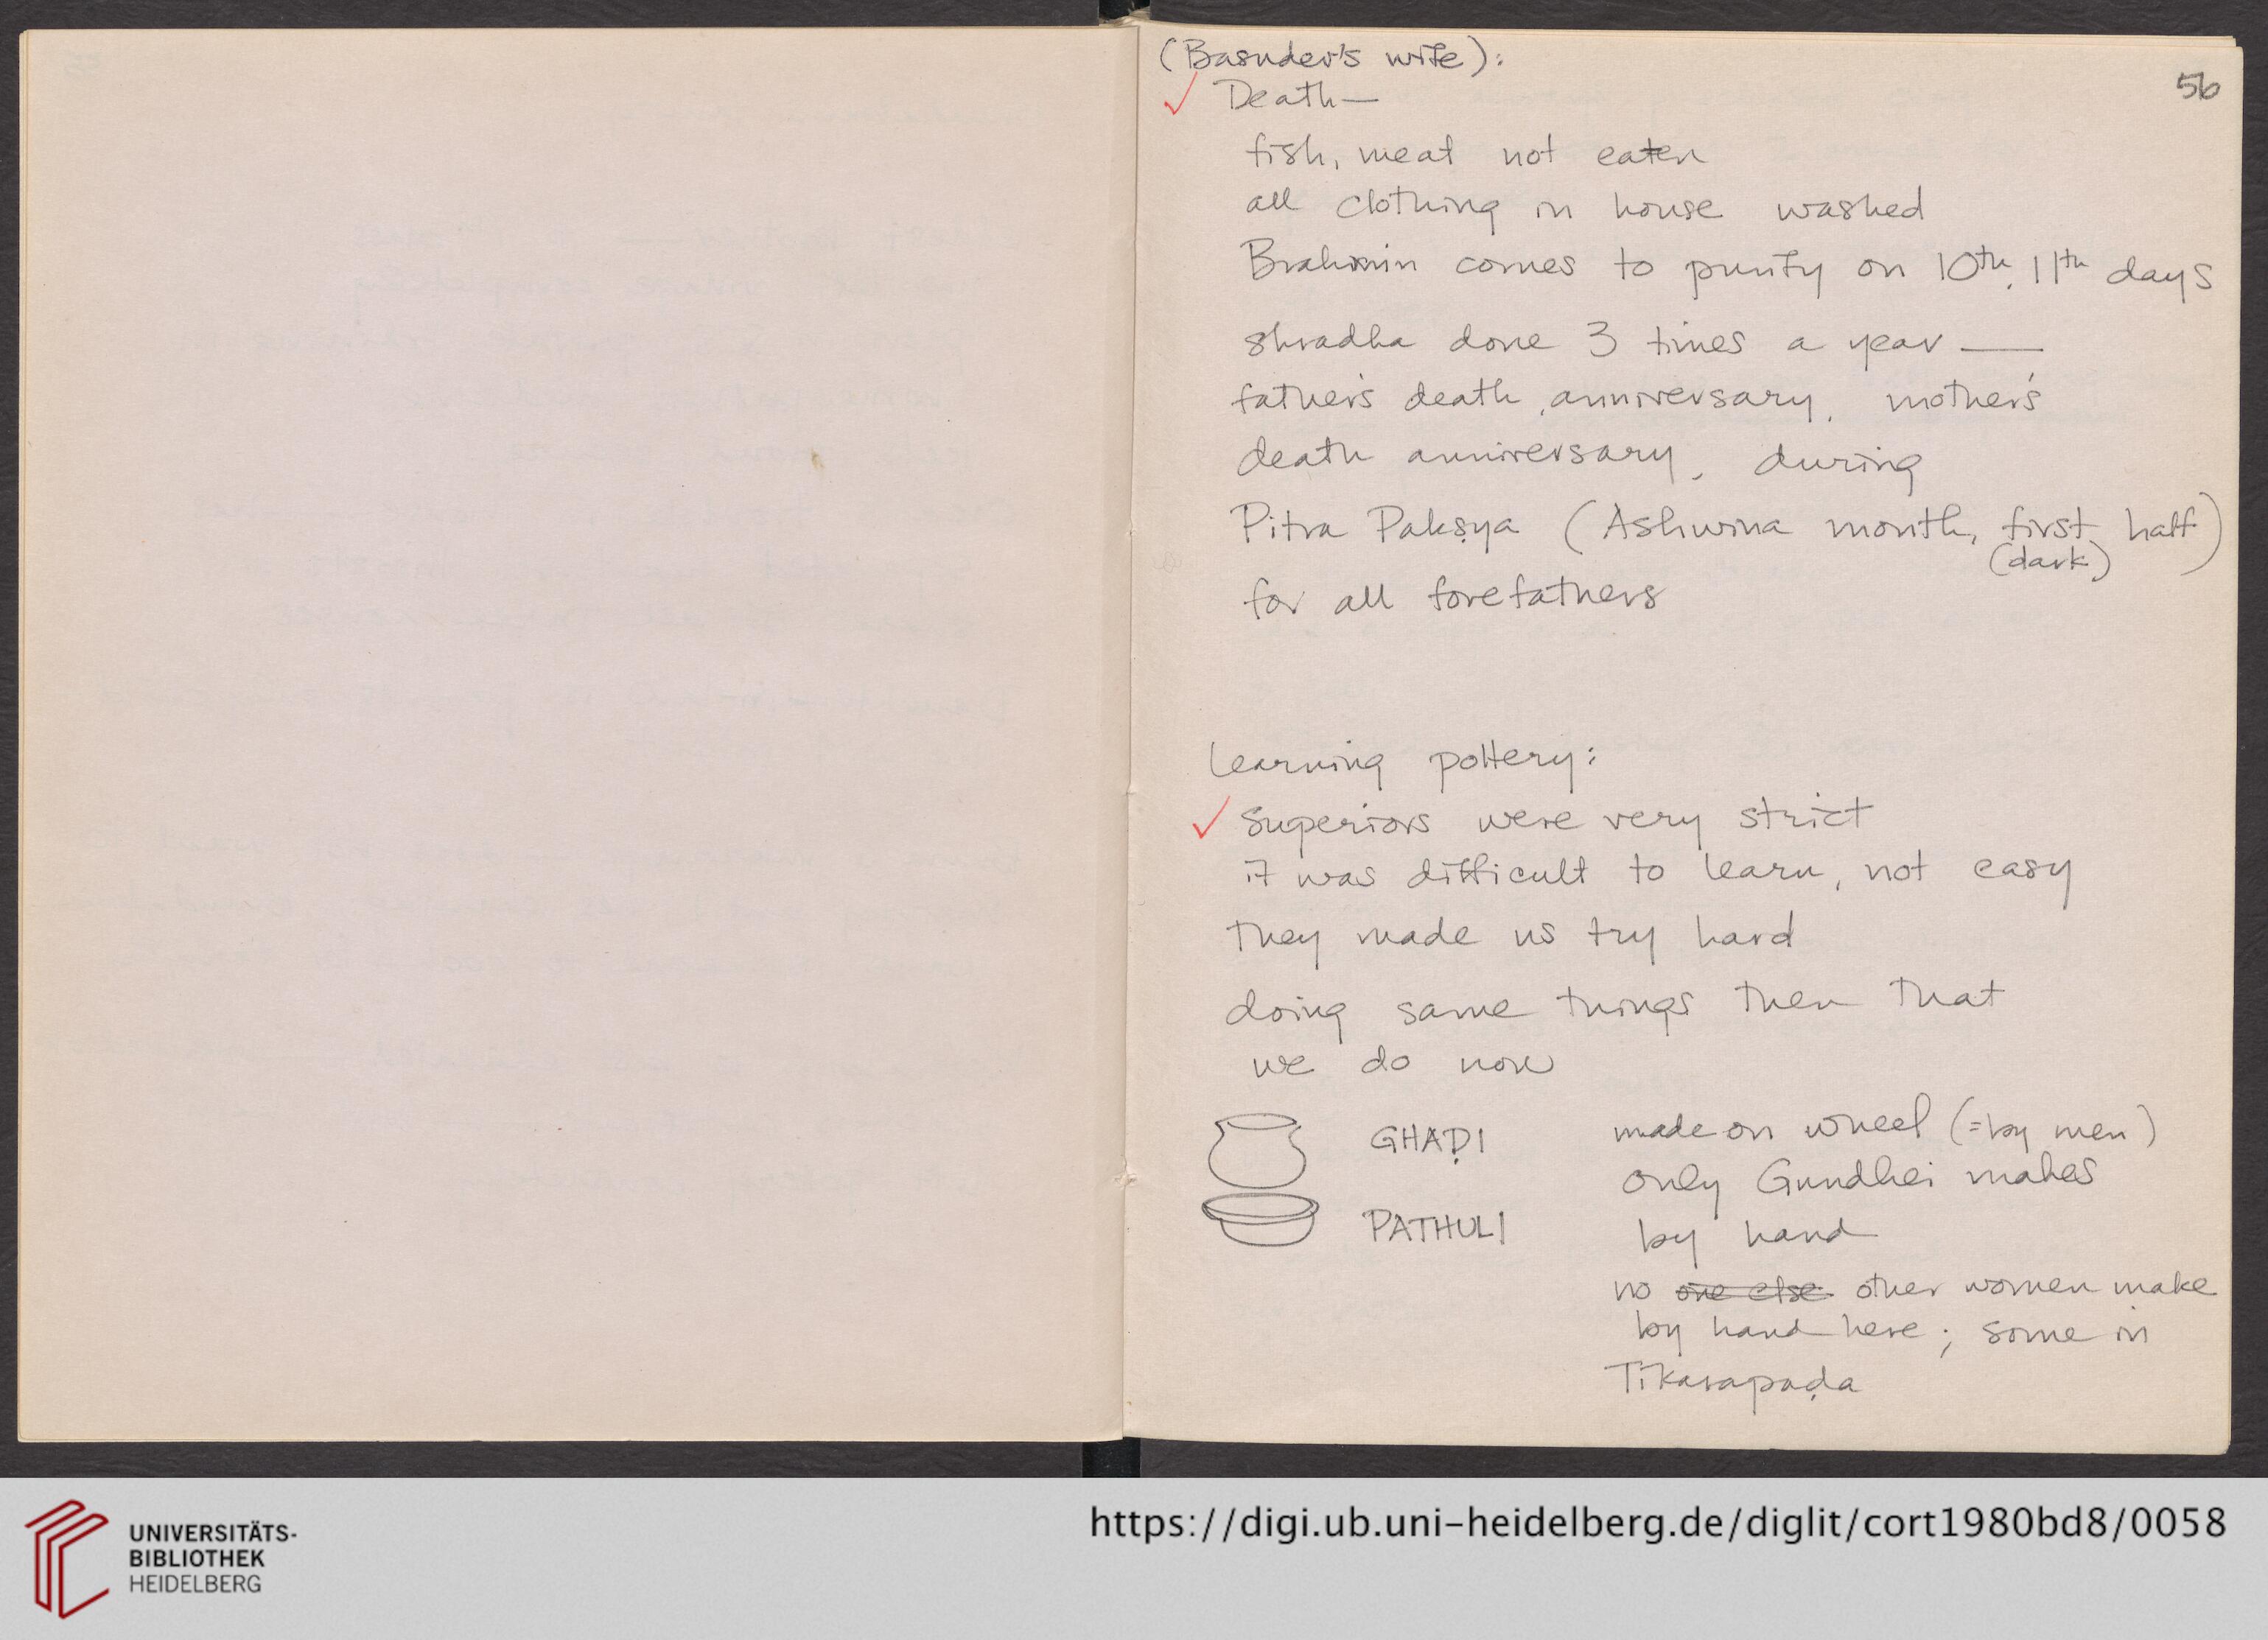 (Basudev's wife):
56
✓ Death —
fish, meat not eaten
all clothing in house washed
Brahmin comes to purify on 10th, 11th days
shradha done 3 times a year —
father's death anniversary, mother's
death anniversary, during
Pitra Pakṣya (Ashwina month, first half)
(dark)
for all forefathers
Learning pottery:
✓ Superiors were very strict
it was difficult to learn, not easy
They made us try hard
doing same things then that
we do now
GHAḌI made on wheel (=by men)
only Gundhei makes
PATHULI by hand
no one else other women make
by hand here; some in
Tikarapaḍa
UNIVERSITÄTS-
BIBLIOTHEK
HEIDELBERG
https://digi.ub.uni-heidelberg.de/diglit/cort1980bd8/0058